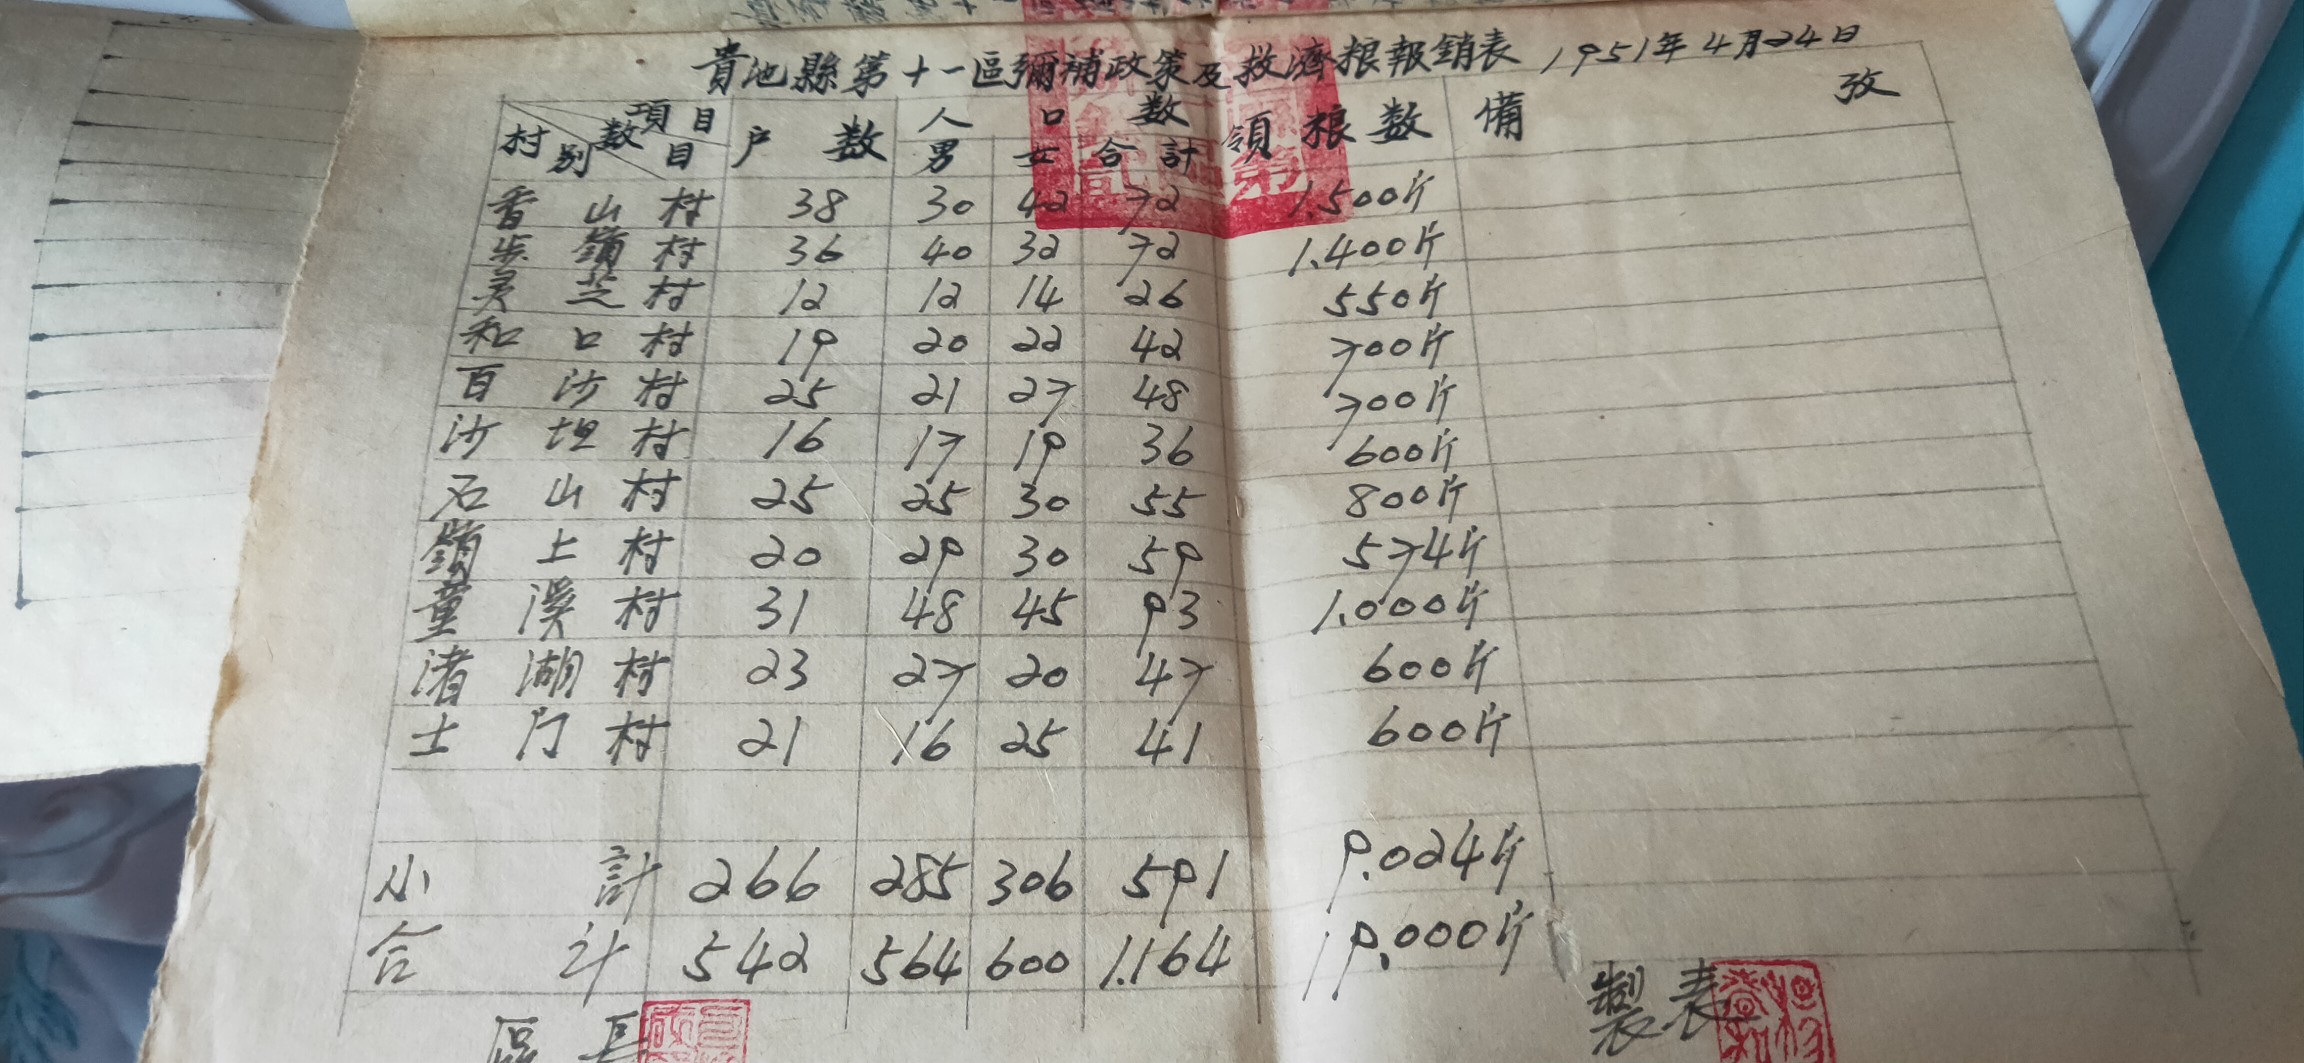 貴池縣第十一區彌補政策及救濟粮報銷表 1951年4月24日
項目 数目 村别 户数 人口数 男 女 合計 領粮数 備攷
香山村 38 30 42 72 1.500斤
嶺村 36 40 32 72 1.400斤
灵芝村 12 12 14 26 550斤
和口村 19 20 22 42 700斤
百沙村 25 21 27 48 700斤
沙坦村 16 17 19 36 600斤
石山村 25 25 30 55 800斤
嶺上村 20 29 30 59 574斤
童溪村 31 48 45 93 1.000斤
渚湖村 23 27 20 47 600斤
土门村 21 16 25 41 600斤
小計 266 285 306 591 9.024斤
合计 542 564 600 1.164 19.000斤
區長
製表